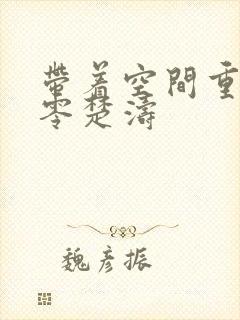 帶着空間重
零楚濤
魏彥振